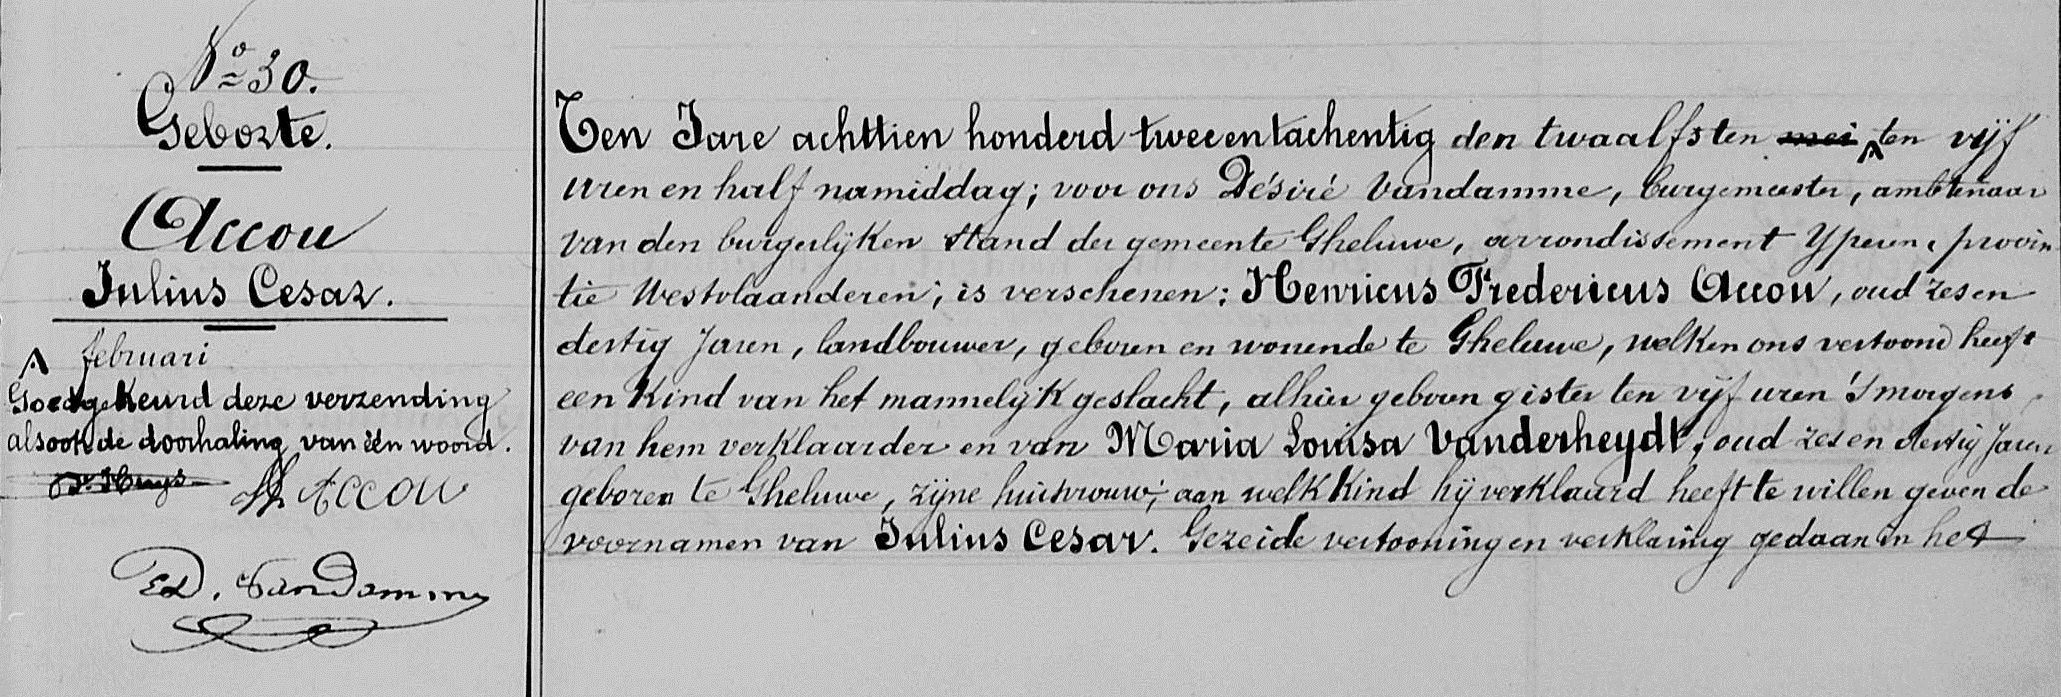 No 30.
Geborte.
Accou
Julius Cesar.
A februari
Goedgekeurd deze verzending
alsook de doorhaling van één woord.
H Accou
D. VanDamme
Ten Jare achttien honderd tweeentachentig den twaalfsten mei A ten vijf
uren en half namiddag; voor ons Désiré Vandamme, burgemeester, ambtenaar
van den burgerlijken stand der gemeente Gheluwe, arrondissement Yperen, provin
tie Westvlaanderen; is verschenen: Henricus Fredericus Accou, oud zes en
dertig Jaren, landbouwer, geboren en wonende te Gheluwe, welken ons vertoond heeft
een Kind van het mannelijk geslacht, alhier geboren gister ten vijf uren 's morgens,
van hem verklaarder en van Maria Louisa Vanderheydt, oud zes en dertig Jaren
geboren te Gheluwe, zijne huisvrouw; aan welk Kind hij verklaard heeft te willen geven de
voornamen van Julius Cesar. Gezeide vertooning en verklaring gedaan in het